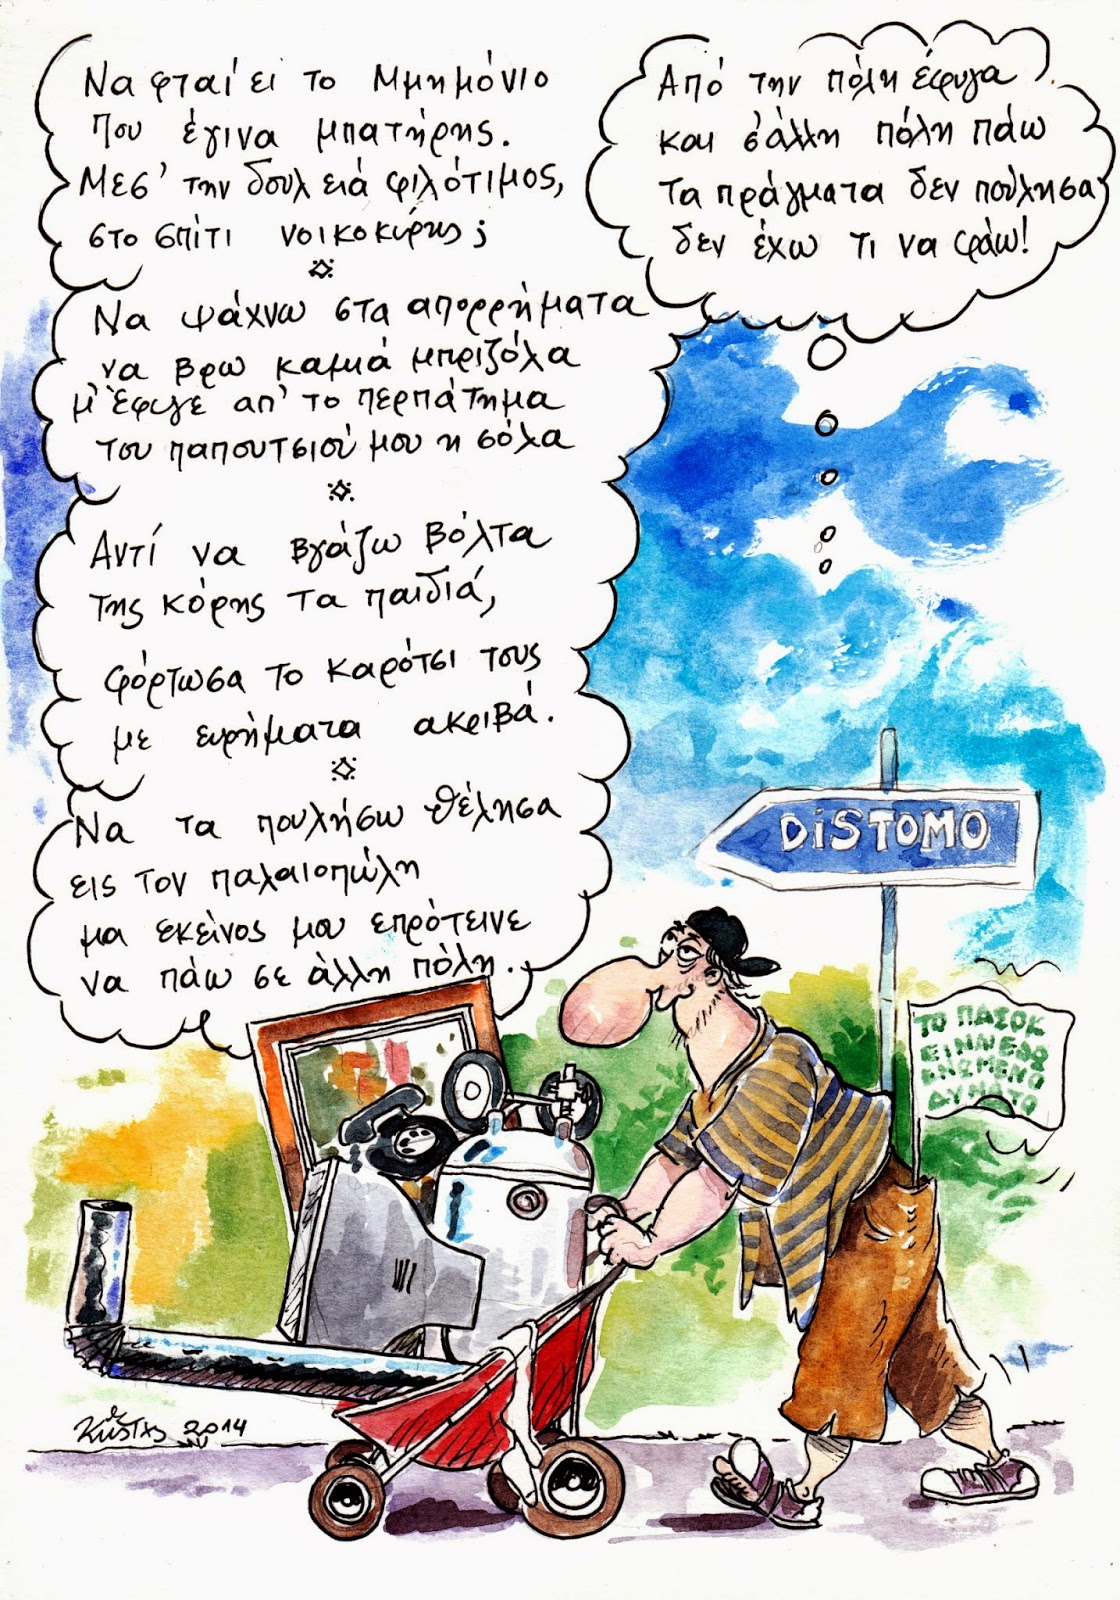 Να φταίει το Μμημόνιο
που έγινα μπατήρης.
Μεσ' την δουλειά φιλότιμος,
στο σπίτι νοικοκύρης;
Να ψάχνω στα απορρήματα
να βρω καμιά μπριζόλα
μ' έφυγε απ' το περπάτημα
του παπουτσιού μου η σόλα
Αντί να βγάζω βόλτα
της κόρης τα παιδιά,
φόρτωσα το καρότσι τους
με ευρήματα ακριβά.
Να τα πουλήσω θέλησα
εις τον παλαιοπώλη
μα εκείνος μου επρότεινε
να πάω σε άλλη πόλη.
Από την πόλη έφυγα
και σ'άλλη πόλη πάω
τα πράγματα δεν πούλησα
δεν έχω τι να φάω!
DiSTOMO
ΤΟ ΠΑΣΟΚ
ΕΙΝΝΕ ΕΔΩ
ΕΝΩΜΕΝΟ
ΔΥΝΑΤΟ
2014